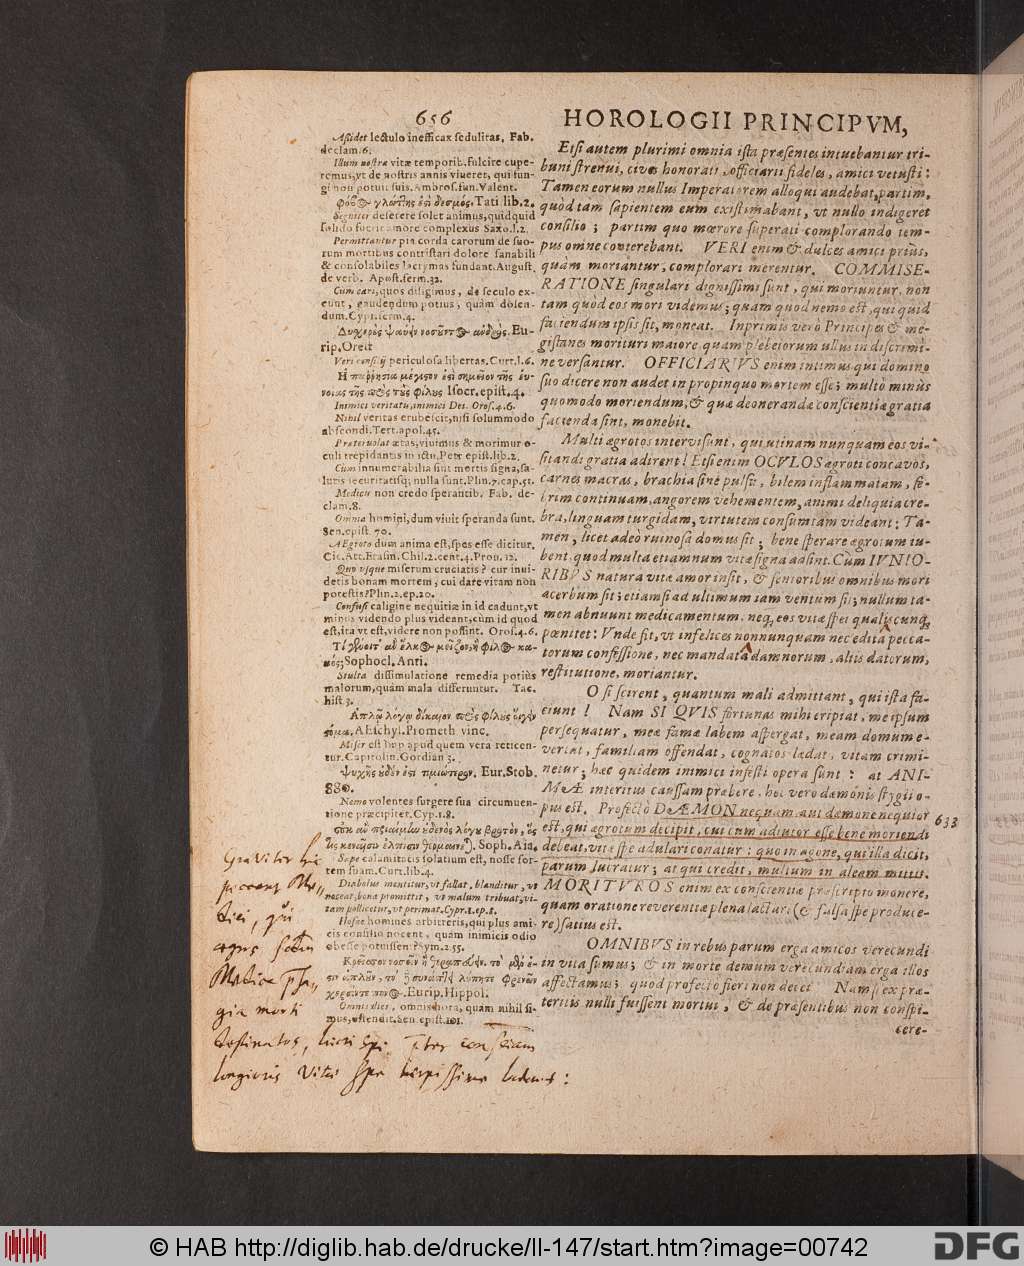 656
HOROLOGII PRINCIPVM,
Assidet lectulo inefficax sedulitas, Fab.
declam.6.
Illum nostræ vitæ temporib. fulcire cupe-
remus, vt de nostris annis viueret, qui fun-
gi non potuit suis. Ambros. fun. Valent.
γλώττης ἐςὶ δεσμός. Tati lib.2.
Segniter deserere solet animus, quidquid
solido fuerit amore complexus Saxo.l.2.
Permittantur pia corda carorum de suo-
rum mortibus contristari dolore sanabili
& consolabiles lacrymas fundant. August.
de verb. Apost. serm.32.
Cum cari, quos diligimus, de seculo ex-
eunt, gaudendum potius, quàm dolen-
dum. Cypr. serm.4.
Eu-
rip. Orest
Veri consilij periculosa libertas. Curt.l.6.
Isocr. epist.4.
Inimici veritatis, inimici Dei. Oros.4.6.
Nihil veritas erubescit, nisi solummodo
abscondi. Tert. apol.45.
Præteruolat ætas, viuimus & morimur o-
culi trepidantis in ictu, Petr epist. lib.2.
Cùm innumerabilia sint mortis signa, sa-
lutis securitatisq; nulla sunt. Plin.7.cap.51.
Medicu non credo sperantib. Fab. de-
clam.8.
Omnia homini, dum viuit speranda sunt.
Sen. epist. 70.
AEgroto dum anima est, spes esse dicitur.
Cic. Att. Erasm. Chil.2.cent.4.Prou.12.
Quo vsque miserum cruciatis? cur inui-
detis bonam mortem, cui dare vitam non
potestis? Plin.2.ep.20.
Confusi caligine nequitiæ in id cadunt, vt
minus videndo plus videant, cùm id quod
est, ita vt est, videre non possint. Oros.4.6.
Sophocl. Anti.
Stulta dissimulatione remedia potiùs
malorum, quàm mala differuntur. Tac.
hist.3.
AEschyl. Prometh vinc.
Miser est Imp apud quem vera reticen-
tur. Capitolin. Gordian 3.
Eur. Stob.
880.
Nemo volentes surgere sua circumuen-
tione præcipitet. Cyp.1.8.
Soph. Aia.
Sæpe calamitatis solatium est, nosse sor-
tem suam. Curt. lib.4.
Diabolus mentitur, vt fallat, blanditur, vt
noceat, bona promittit, vt malum tribuat, vi-
tam pollicetur, vt perimat. Cypr.1.ep.8.
Hosce homines arbitreris, qui plus ami-
cis consilio nocent, quàm inimicis odio
obesse potuissent? Sym.2.55.
Eurip. Hippol.
Omnis dies, omnis hora, quàm nihil si-
mus, ostendit. Sen. epist.101.
Etsi autem plurimi omnia ista præsentes intuebantur tri-
buni strenui, ciues honorati, officiarii fideles, amici vetusti:
Tamen eorum nullus Imperatorem alloqui audebat, partim,
quòd tam sapientem eum existimabant, vt nullo indigeret
consilio; partim quo mœrore superati complorando tem-
pus omne conterebant. VERI enim & dulces amici priùs,
quàm moriantur, complorari merentur. COMMISE-
RATIONE singulari dignissimi sunt, qui moriuntur, non
tam quòd eos mori videmus; quàm quod nemo est, qui quid
faciendum ipsis sit, moneat. Inprimis verò Principes & me-
gistanes morituri maiore, quam plebeiorum ullus in discrimi-
ne versantur. OFFICIARIVS enim intimus qui domino
suo dicere non audet in propinquo mortem esse; multò minùs
quomodo moriendum, & quæ deonerandæ conscientiæ gratia
facienda sint, monebit.
Multi ægrotos interuisunt, qui utinam nunquam eos vi-
sitandi gratia adirent! Etsi enim OCVLOS ægroti concavos,
carnes macras, brachia sine pulsu, bilem inflammatam, fe-
brim continuam, angorem vehementem, animi deliquia cre-
bra, linguam turgidam, virtutem consumtam videant: Ta-
men, licet adeò ruinosa domus sit; bene sperare ægrotum iu-
bent, quod multa etiamnum vitæ signa adsint. Cùm IVNIO-
RIBVS natura vitæ amor insit, & senioribus omnibus mori
acerbum sit; etiamsi ad ultimum iam ventum sit; nullum ta-
men abnuunt medicamentum, neq; eos vitæ spei qualiscunq;
pœnitet: Vnde fit, vt infelices nonnunquam nec edita pecca-
torum confessione, nec mandata damnorum, aliis datorum,
restitutione, moriantur.
O si scirent, quantum mali admittant, qui ista fa-
ciunt! Nam SI QVIS fortunas mihi eripiat, me ipsum
persequatur, meæ famæ labem aspergat, meam domum e-
vertat, familiam offendat, cognatos lædat, vitam crimi-
netur; hæc quidem inimici infesti opera sunt: at ANI-
MÆ interitus caussam præbere, hoc vero dæmonis stygii o-
pus est. Profectò DÆMON nequam aut dæmone nequior
est, qui ægrotum decipit, cui cum adiutor esse bene moriendi
debeat, vitæ spe adulari conatur: quo in agone, qui illa dicit,
parum lucratur; at qui credit, multum in aleam mittit.
MORITVROS enim ex conscientiæ præscripto monere,
quam oratione reverentiæ plena lactari (& falsa spe produce-
re) satius est.
OMNIBVS in rebus parum erga amicos verecundi
in vita sumus; & in morte demum verecundiam erga illos
affectamus; quod profectò fieri non decet. Nam si ex præ-
teritis nulli fuissent mortui, & de præsentibus non conspi-
cere-
633
Graviter hic
peccant
qui
morti
destinatos,
longioris vitæ spe
© HAB http://diglib.hab.de/drucke/li-147/start.htm?image=00742
DFG